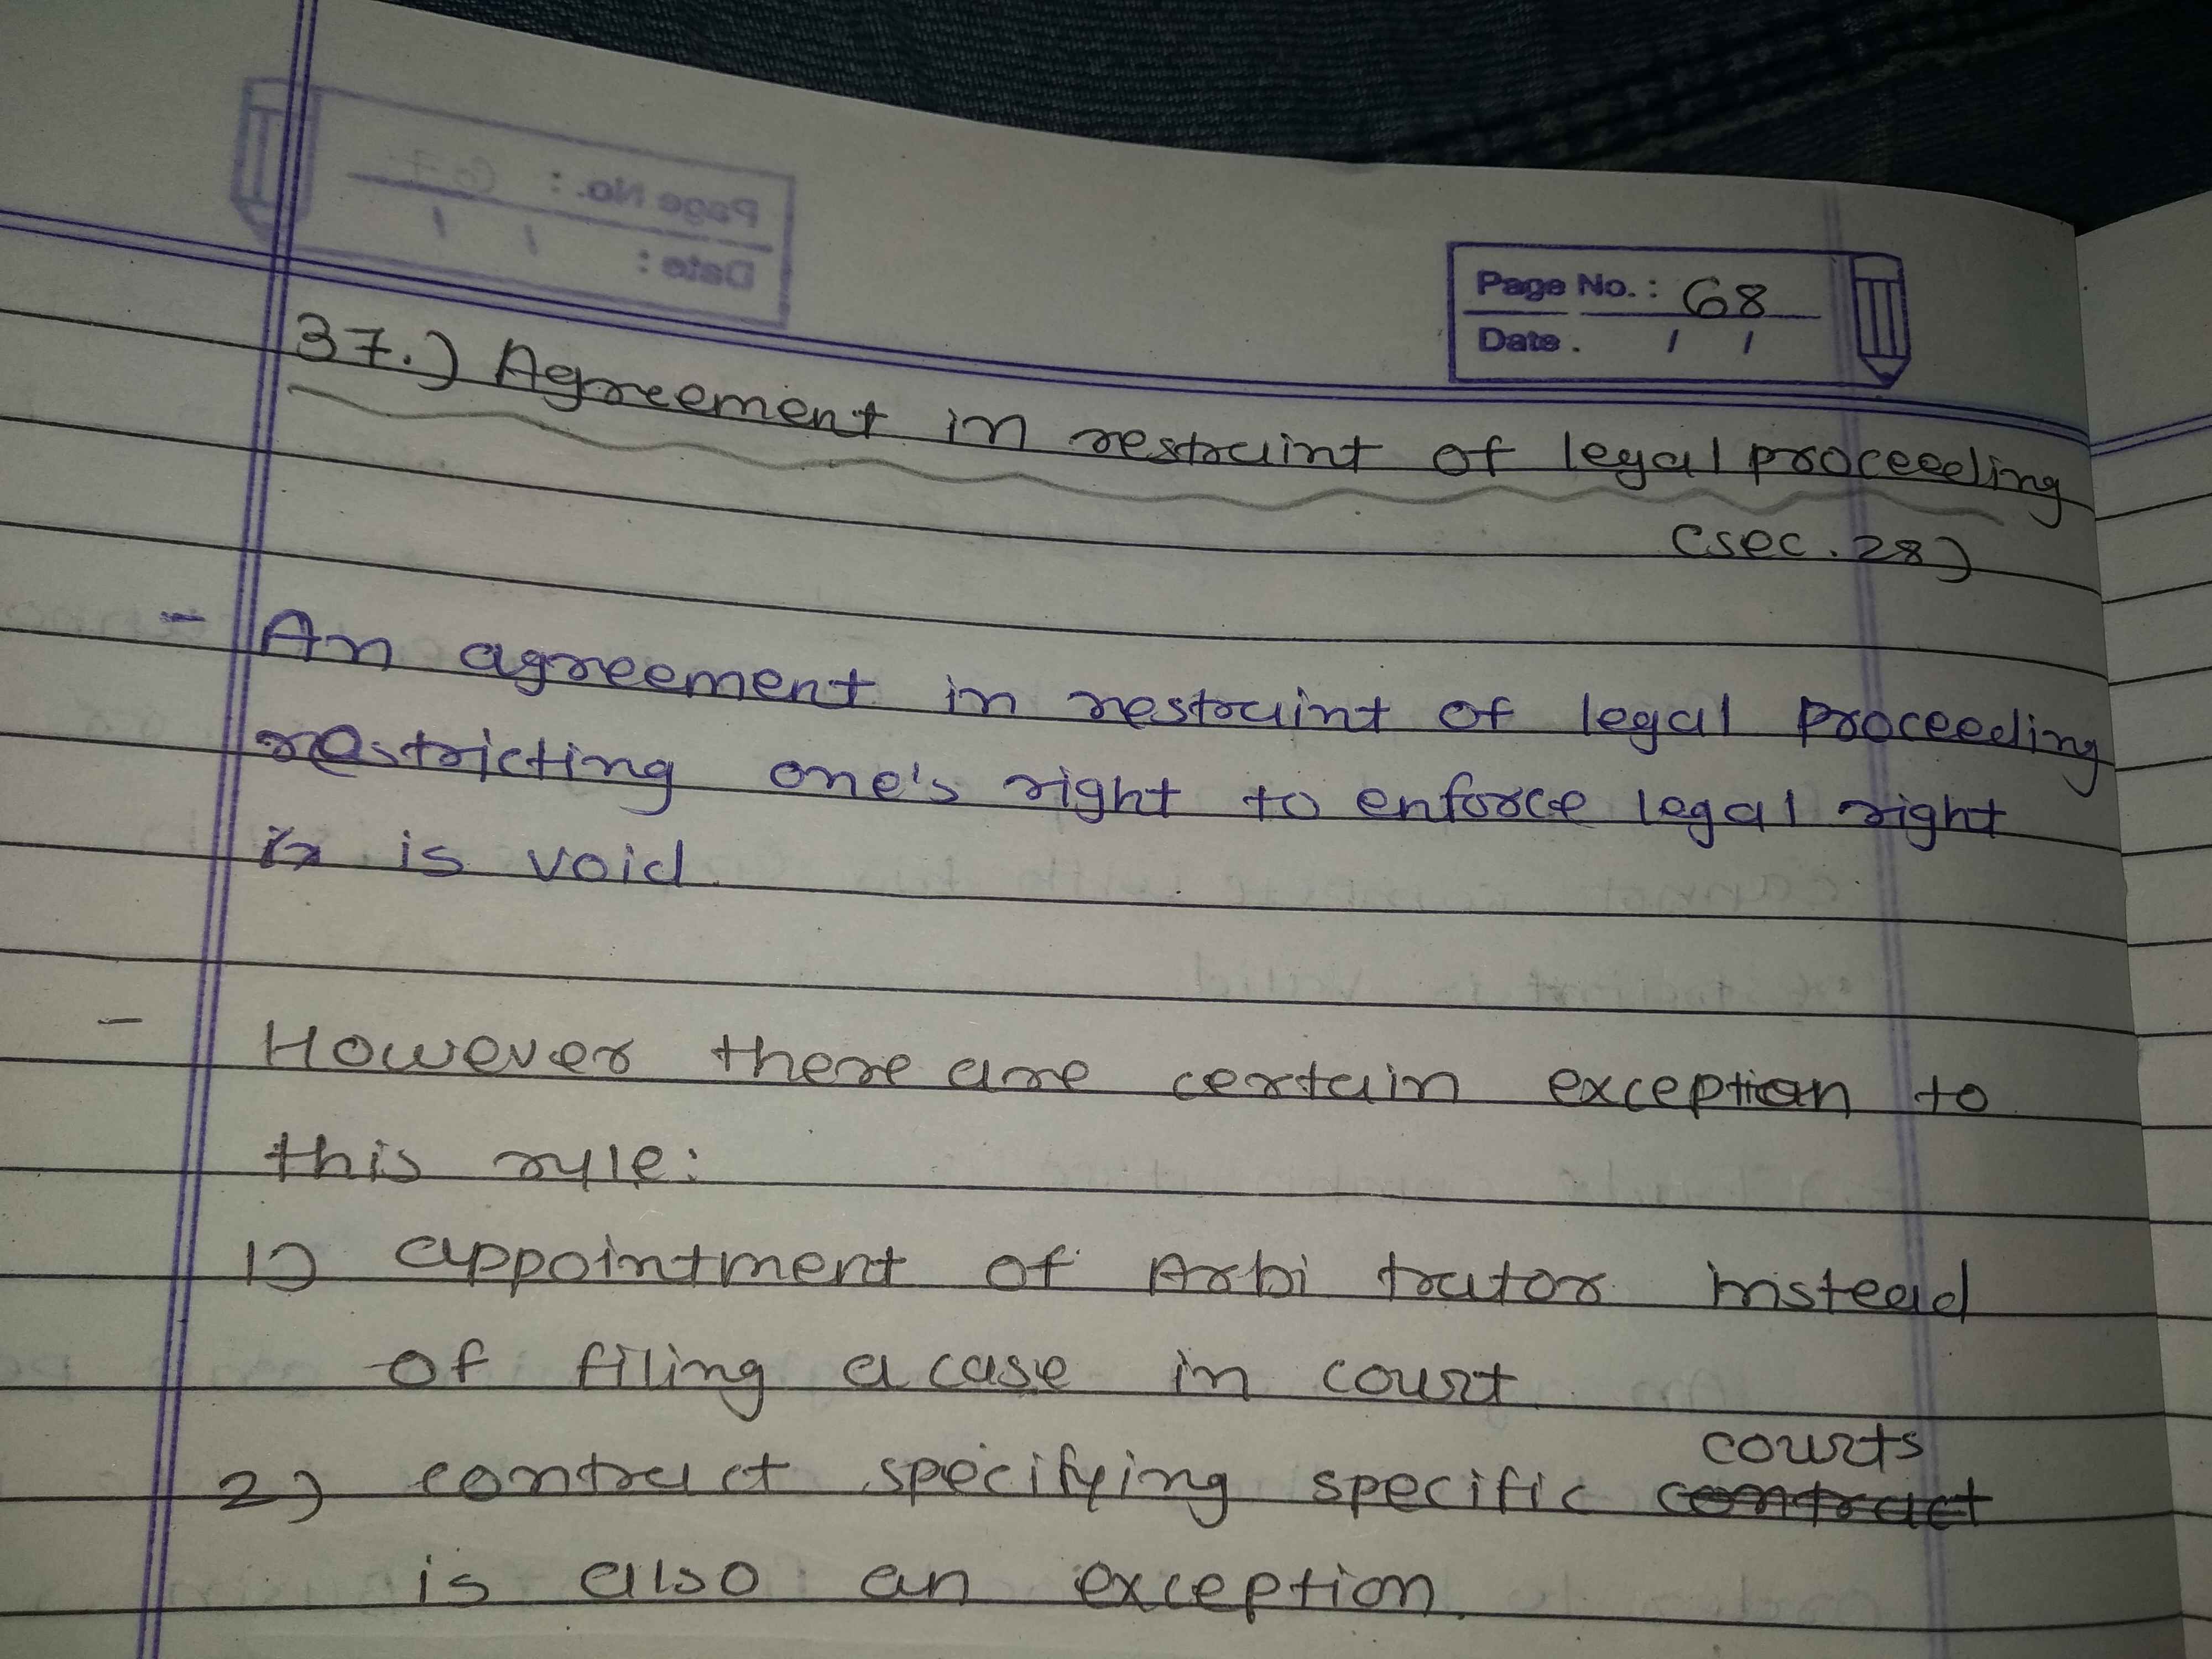 Page No. : 67
Date : / /
Page No. : 68
Date . / /
37.) Agreement in restraint of legal proceeding
(sec. 28)
- An agreement in restraint of legal proceeding
restricting one's right to enforce legal right
is is void.
- However there are certain exception to
this rule:
1) appointment of Arbi trator instead
of filing a case in court.
courts
2) contract specifying specific contract
is also an exception.